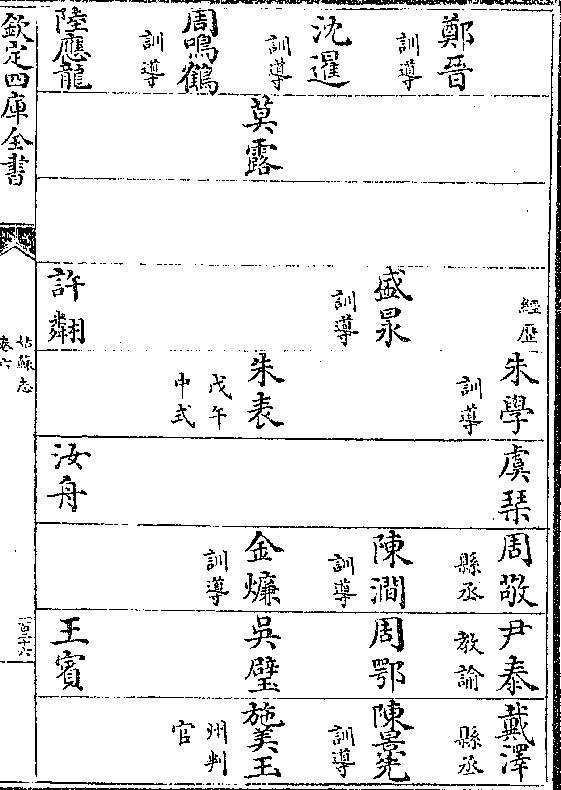 鄭晉
訓導
沈暹
訓導
周鳴鶴
訓導
陸應龍
莫露
經歴
盛
訓導
許翷
朱學
訓導
朱表
戊午
中式
虞琹
汝舟
周敬
縣丞
陳澗
訓導
金燫
訓導
尹泰
教諭
周鄂
吳璧
王賓
戴澤
縣丞
陳景
訓導
施美玉
州判
官
欽定四庫全書
姑蘇志
卷六